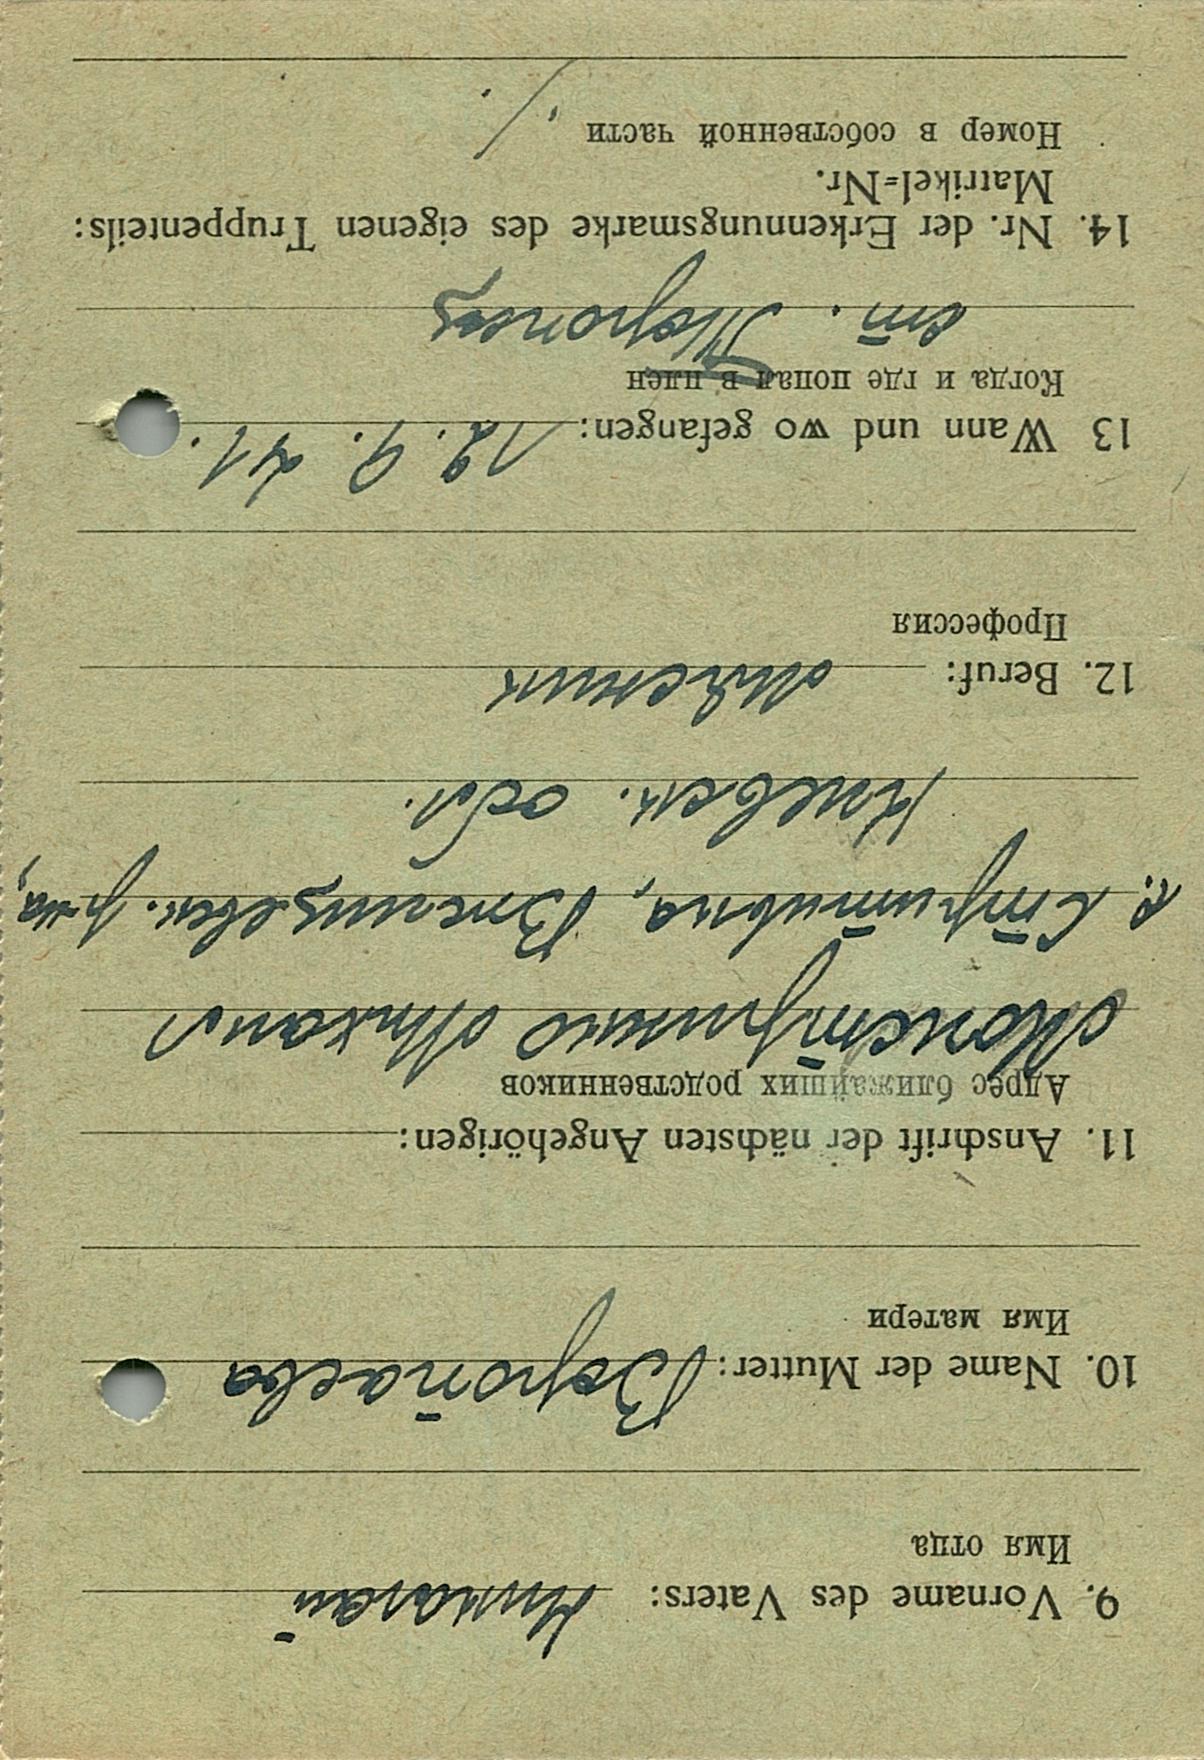 9. Vorname des Vaters: Николай
Имя отца
10. Name der Mutter:
Имя матери
11. Anschrift der nächsten Angehörigen:
Адрес ближайших родственников
Михаил
с.
Киевск. обл.
12. Beruf:
Профессия
13 Wann und wo gefangen: 12. 9. 41.
Когда и где попал в плен
ст. Торопец
14. Nr. der Erkennungsmarke des eigenen Truppenteils:
Matrikel=Nr.
Номер в собственной части